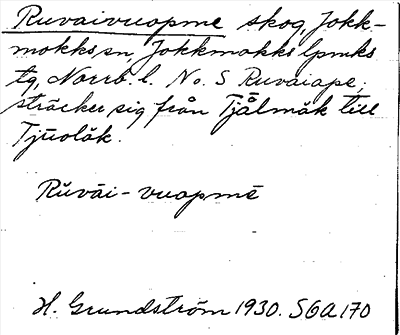 Ruvaivuopme skog, Jokk-
mokks sn, Jokkmokks lpmks
tg, Norrb. l. No. S Ruvaiape;
sträcker sig från Tjålmäk till
Tjuolåk.
Rŭvāi - vuopmē
H. Grundström 1930. SGA 170